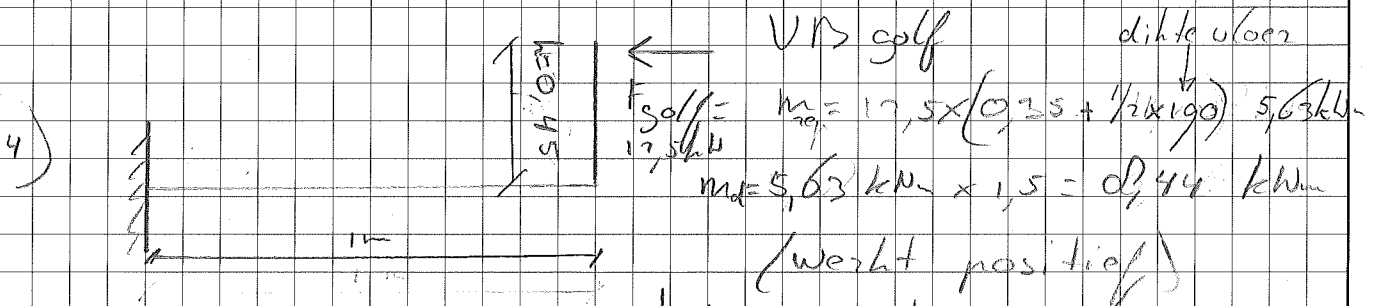 VB golf dihte vloer
4) F golf = 12,5 kN
m rep = 12,5 x (0,35 + 1/2 x 190) 5,63 kNm
m d = 5,63 kNm x 1,5 = 8,44 kNm
(werkt positief)
0,45 m
1 m